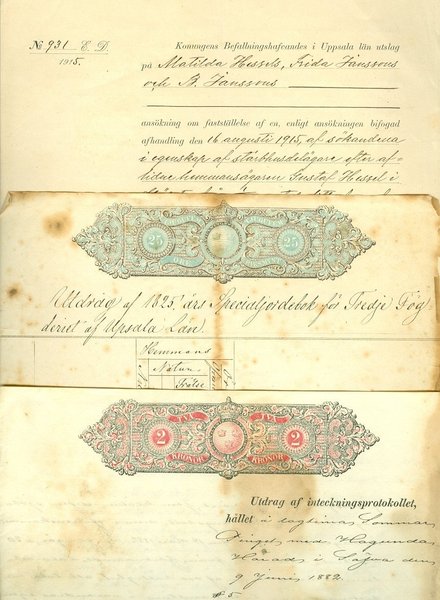 No 931 E. D.
1915.
Konungens Befallningshafvandes i Uppsala län utslag
på Matilda Hessels, Frida Janssons
och B. Janssons
ansökning om fastställelse af en, enligt ansökningen bifogad
afhandling den 16 augusti 1915, af sökandena
i egenskap af stärbhusdelägare efter af-
lidne hemmansägaren Gustaf Hessel i
25
25
Utdrag af 1825 års Specialjordebok för Tredje Fög
deriet af Upsala Län.
Hemmans
Natur.
Frälse
TVÅ
TVÅ
2
2
KRONOR
KRONOR
Utdrag af inteckningsprotokollet,
hållet å lagtima Sommar
Tinget med Hagunda
Härad i Säfva den
9 Junii 1882.
§ 5